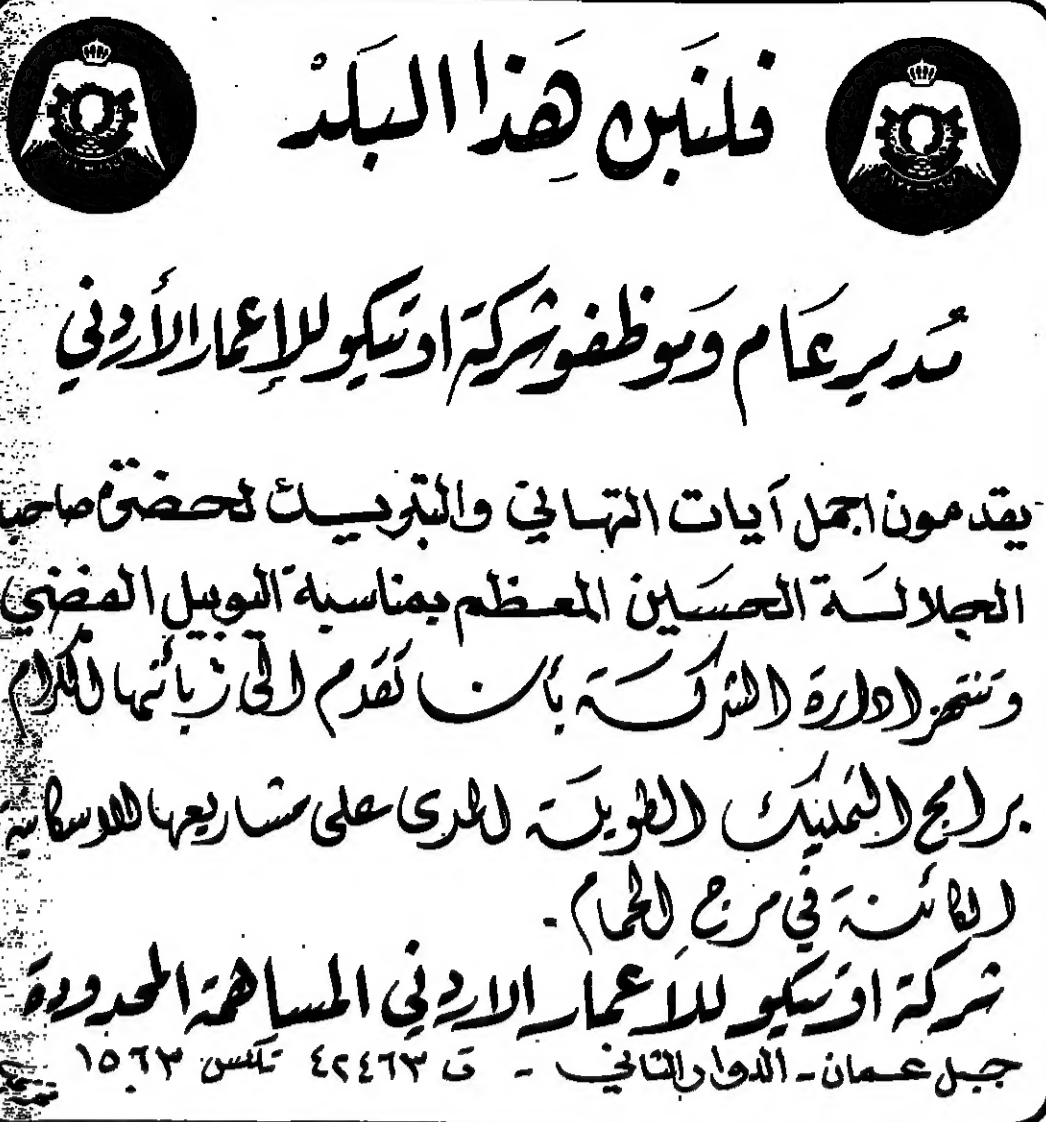 فلنَبن هَذا البَلَدْ
مُدير عَام وَموظفو شركة اوتيكو للإعمار الأردني
يقدمون اجمل آيات التهاني والتبريك لحضرة صاحب
الجلالة الحسَين المعظم بمناسبة اليوبيل الفضي
وتنتهز ادارة الشركة بأن تقدم الى زبائنها الكرام
برامج التمليك الطويلة المدى على مشاريعها الاسكانية
الكائنة في مرج الحمام .
شركة اوتيكو للاعمار الاردني المساهمة المحدودة
جبل عمان - الدوار الثاني - ت ٤٢٤٦٣ تلكس ١٥٦٣